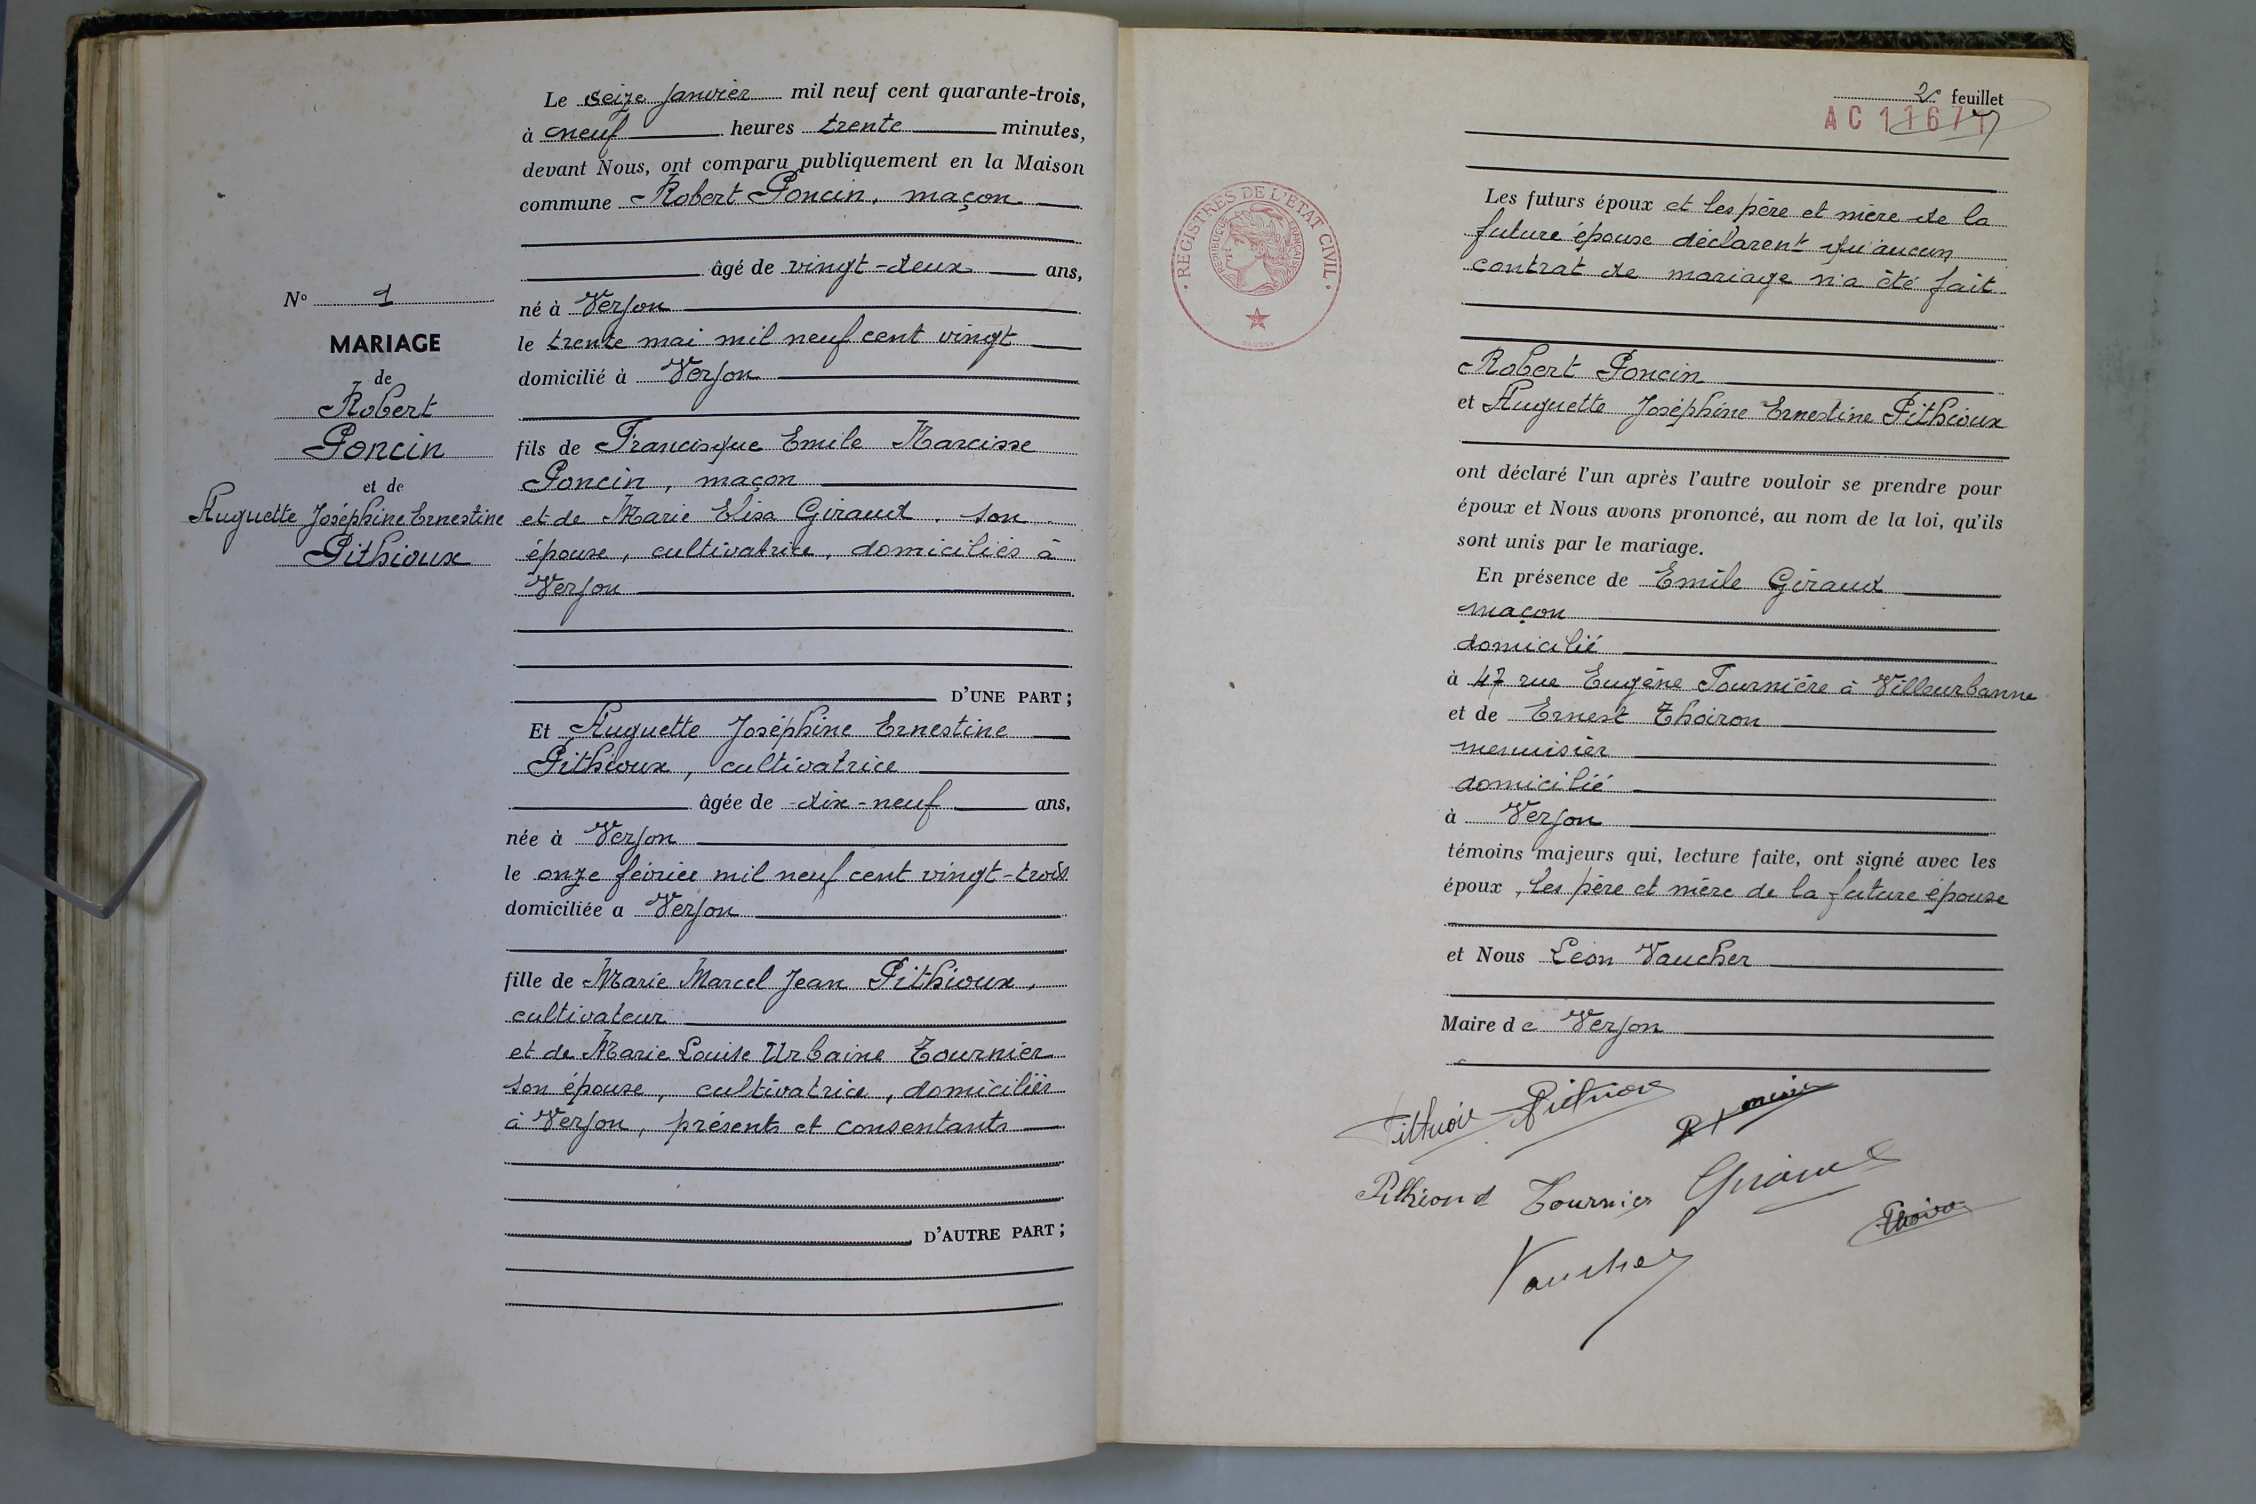 Le seize janvier mil neuf cent quarante-trois,
à neuf heures trente minutes,
devant Nous, ont comparu publiquement en la Maison
commune Robert Poncin, maçon
âgé de vingt-deux ans,
né à Verjon
le trente mai mil neuf cent vingt
domicilié à Verjon
fils de Francisque Emile Narcisse
Poncin, maçon
et de Marie Elisa Giraud, son
épouse, cultivatrice, domiciliés à
Verjon
D'UNE PART;
Et Huguette Joséphine Ernestine
Pithioux, cultivatrice
âgée de dix-neuf ans,
née à Verjon
le onze février mil neuf cent vingt-trois
domiciliée a Verjon
fille de Marie Marcel Jean Pithioux,
cultivateur
et de Marie Louise Urbaine Tournier
son épouse, cultivatrice, domiciliés
à Verjon, présents et consentants
D'AUTRE PART;
N° 1
MARIAGE
de
Robert
Poncin
et de
Huguette Joséphine Ernestine
Pithioux
2e feuillet
AC 11671
REGISTRES DE L'ÉTAT CIVIL
RÉPUBLIQUE FRANÇAISE
Les futurs époux et les père et mère de la
future épouse déclarent qu'aucun
contrat de mariage n'a été fait
Robert Poncin
et Huguette Joséphine Ernestine Pithioux
ont déclaré l'un après l'autre vouloir se prendre pour
époux et Nous avons prononcé, au nom de la loi, qu'ils
sont unis par le mariage.
En présence de Emile Giraud
maçon
domicilié
à 47 rue Eugène Fournière à Villeurbanne
et de Ernest Thoiron
menuisier
domicilié
à Verjon
témoins majeurs qui, lecture faite, ont signé avec les
époux, les père et mère de la future épouse
et Nous Léon Vaucher
Maire de Verjon
R Poncin
Tournier Giraud
Vaucher